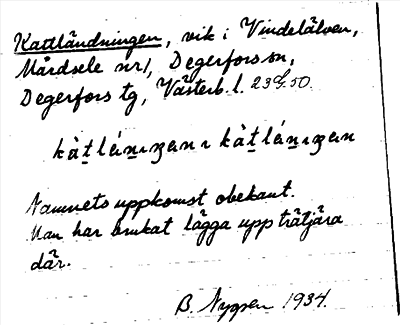 Kattländningen, vik i Vindelälven,
Mårdsele nr 1, Degerfors sn,
Degerfors tg, Västerb. l.
kàtlánıŋen ı kàtlánıŋen
Namnets uppkomst obekant.
Man har brukat lägga upp trätjära
där.
B. Nygren 1934.